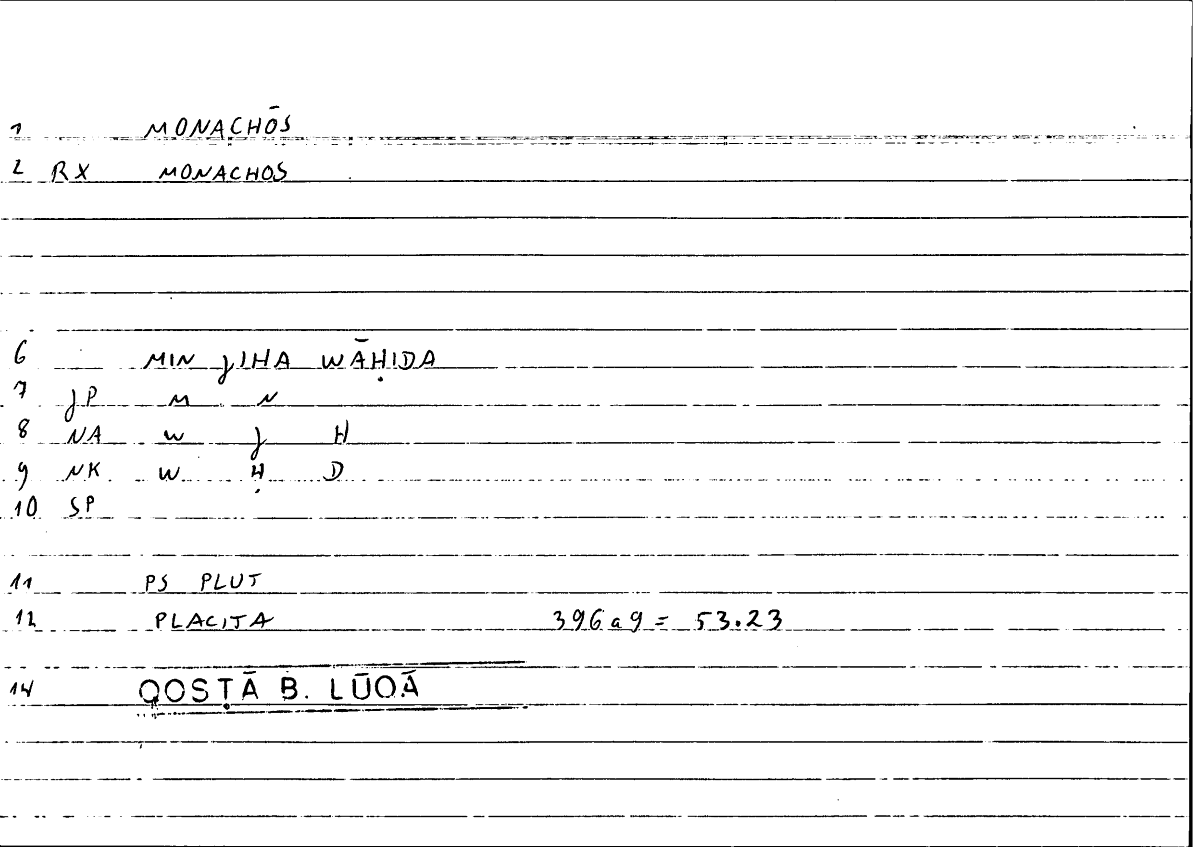 1 MONACHŌS
2 RX MONACHOS
6 MIN JIHA WĀḤIDA
7 JP M N
8 NA W J H
9 NK W Ḥ D
10 SP
11 PS PLUT
12 PLACITA 396a9 = 53.23
14 QOSṬĀ B. LŪQĀ